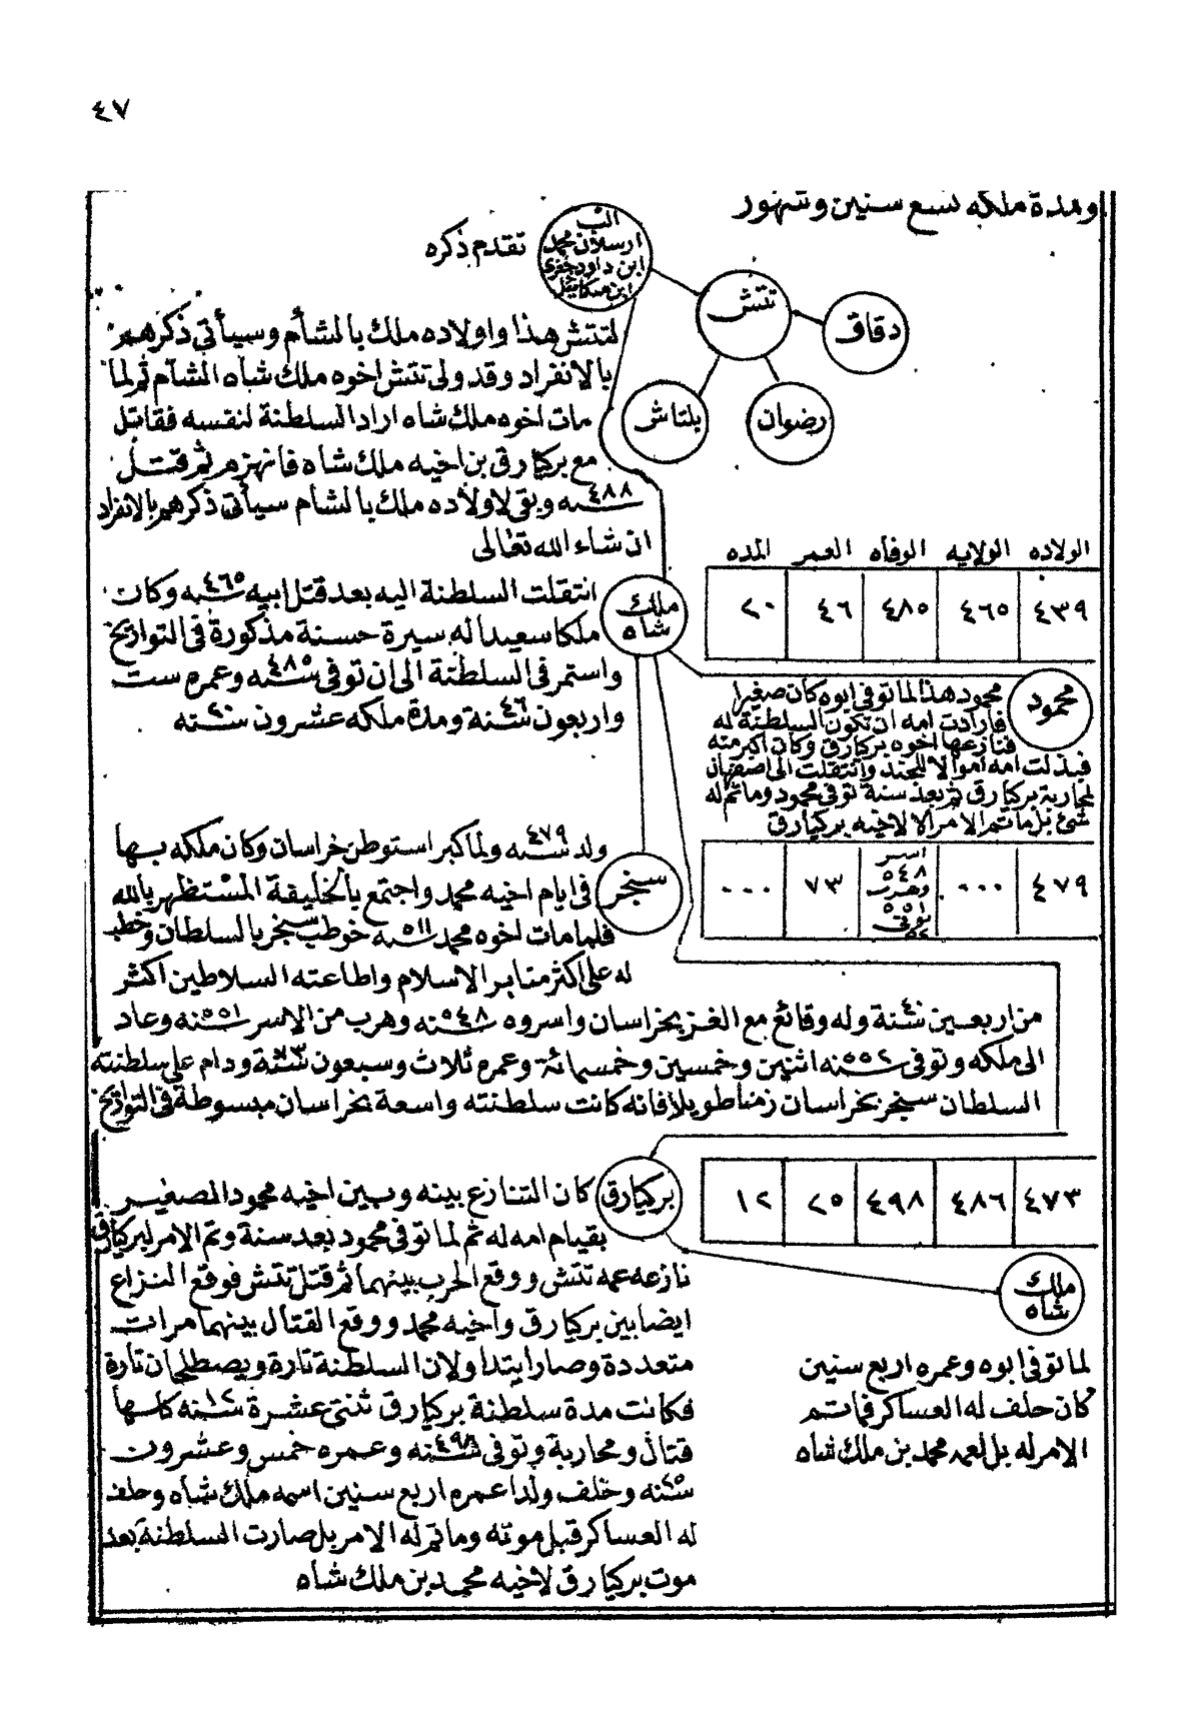 ٤٧
ومدة ملكه تسع سنين وشهور
الب
ارسلان محمد
ابن داود جغري
ابن ميكائيل
تقدم ذكره
تتش
دقاق
رضوان
بلتاش
لتتش هذا واولاده ملك بالشأم وسيأتي ذكرهم
بالانفراد وقد ولى تتش اخوه ملك شاه الشأم ثم لما
مات اخوه ملك شاه اراد السلطنة لنفسه فقاتل
مع بركيارق بن اخيه ملك شاه فانهزم ثم قتل
سنه ٤٨٨ وبقى لاولاده ملك بالشام سيأتي ذكرهم بالانفراد
ان شاء الله تعالى
الولاده الولايه الوفاه العمر المده
٤٣٩ ٤٦٥ ٤٨٥ ٤٦ ٢٠
ملك
شاه
انتقلت السلطنة اليه بعد قتل ابيه سنه ٤٦٥ وكان
ملكا سعيدا له سيرة حسنة مذكورة فى التواريخ
واستمر فى السلطنة الى ان توفى سنه ٤٨٥ وعمره ست
واربعون سنة ٤٦ ومدة ملكه عشرون سنه ٢٠
محمود
محمود هذا لما توفى ابوه كان صغيرا
فارادت امه ان تكون السلطنة له
فنازعها اخوه بركيارق وكان اكبر منه
فبذلت امه اموالا للجند وانتقلت الى اصفهان
لمحاربة بركيارق ثم بعد سنة توفى محمود وما تم له
شئ بل ما تم الامر الا لاخيه بركيارق
٤٧٩ ٠٠٠ اسر ٥٤٨ وهرب ٥٥١ توفى ٧٣ ٠٠٠
سنجر
ولد سنه ٤٧٩ ولما كبر استوطن خراسان وكان ملكه بها
فى ايام اخيه محمد واجتمع بالخليفة المستظهر بالله
فلما مات اخوه محمد سنه ٥١١ خوطب سنجر بالسلطان وخطب
له على اكثر منابر الاسلام واطاعته السلاطين اكثر
من اربعين سنة ٤٠ وله وقائع مع الغز بخراسان واسروه سنه ٥٤٨ وهرب من الاسر سنه ٥٥١ وعاد
الى ملكه وتوفى سنه ٥٥٢ اثنين وخمسين وخمسمائة وعمره ثلاث وسبعون سنة ٧٣ ودام على سلطنته
السلطان سنجر بخراسان زمنا طويلا فانه كانت سلطنته واسعة بخراسان مبسوطة فى التواريخ
٤٧٣ ٤٨٦ ٤٩٨ ٢٥ ١٢
بركيارق
كان التنازع بينه وبين اخيه محمود الصغير
بقيام امه له ثم لما توفى محمود بعد سنة وتم الامر لبركيارق
نازعه عمه تتش ووقع الحرب بينهما ثم قتل تتش فوقع النزاع
ايضا بين بركيارق واخيه محمد ووقع القتال بينهما مرات
متعددة وصارا يتداولان السلطنة تارة ويصطلحان تارة
فكانت مدة سلطنة بركيارق ثنتى عشرة سنه ١٢ كلها
قتال ومحاربة وتوفى سنه ٤٩٨ وعمره خمس وعشرون
سنه ٢٥ وخلف ولدا عمره اربع سنين اسمه ملك شاه وحلف
له العساكر قبل موته وما تم له الامر بل صارت السلطنة بعد
موت بركيارق لاخيه محمد بن ملك شاه
ملك
شاه
لما توفى ابوه وعمره اربع سنين
كان حلف له العساكر فما تم
الامر له بل لعمه محمد بن ملك شاه